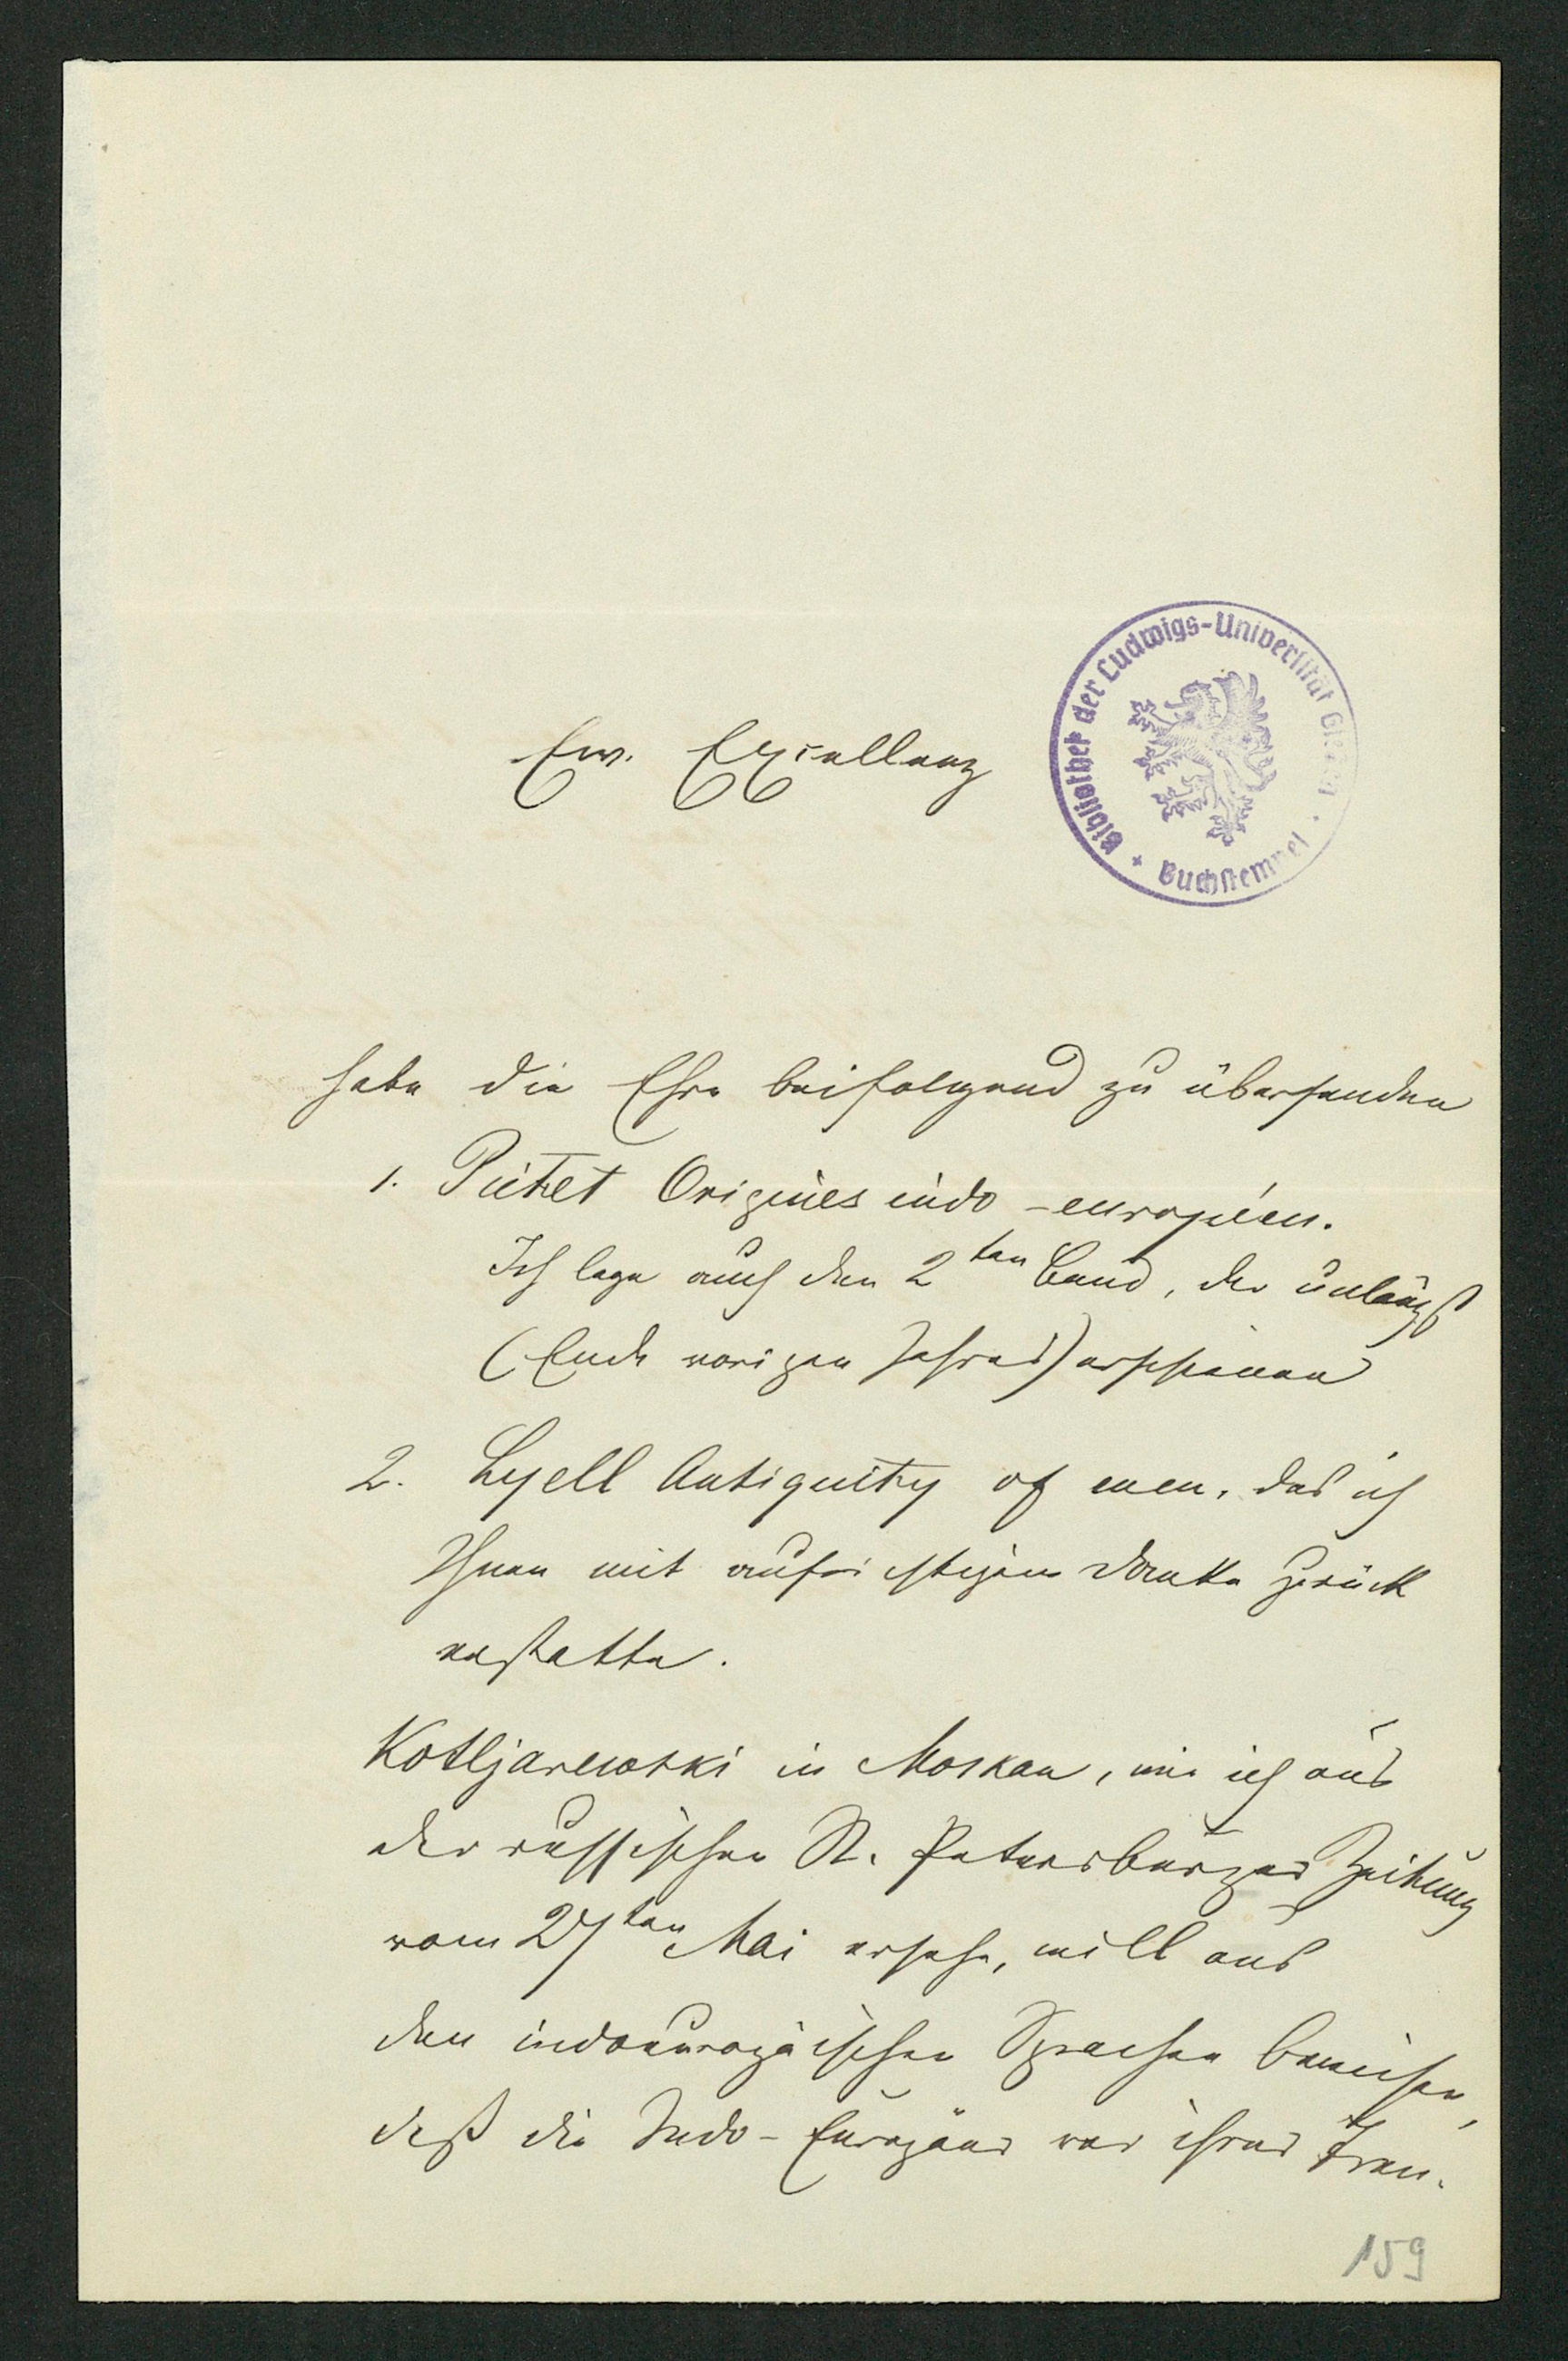 Bibliothek der Ludwigs-Universität Giessen · Buchstempel +
Ew. Excellenz
habe die Ehre beifolgend zu übersenden
1. Pictet Origines indo-européen.
Ich lege auch den 2ten Band, der unlängst
(Ende vorigen Jahres) erschienen
2. Lyell Antiquity of men, das ich
Ihnen mit aufrichtigem Danke zurück
erstatte.
Kotljarewski in Moskau, wie ich aus
der russischen St. Petersburger Zeitung
vom 27ten Mai ersehe, will aus
den indoeuropäischen Sprachen beweisen,
daß die Indo-Europäer vor ihrer Tren-
159